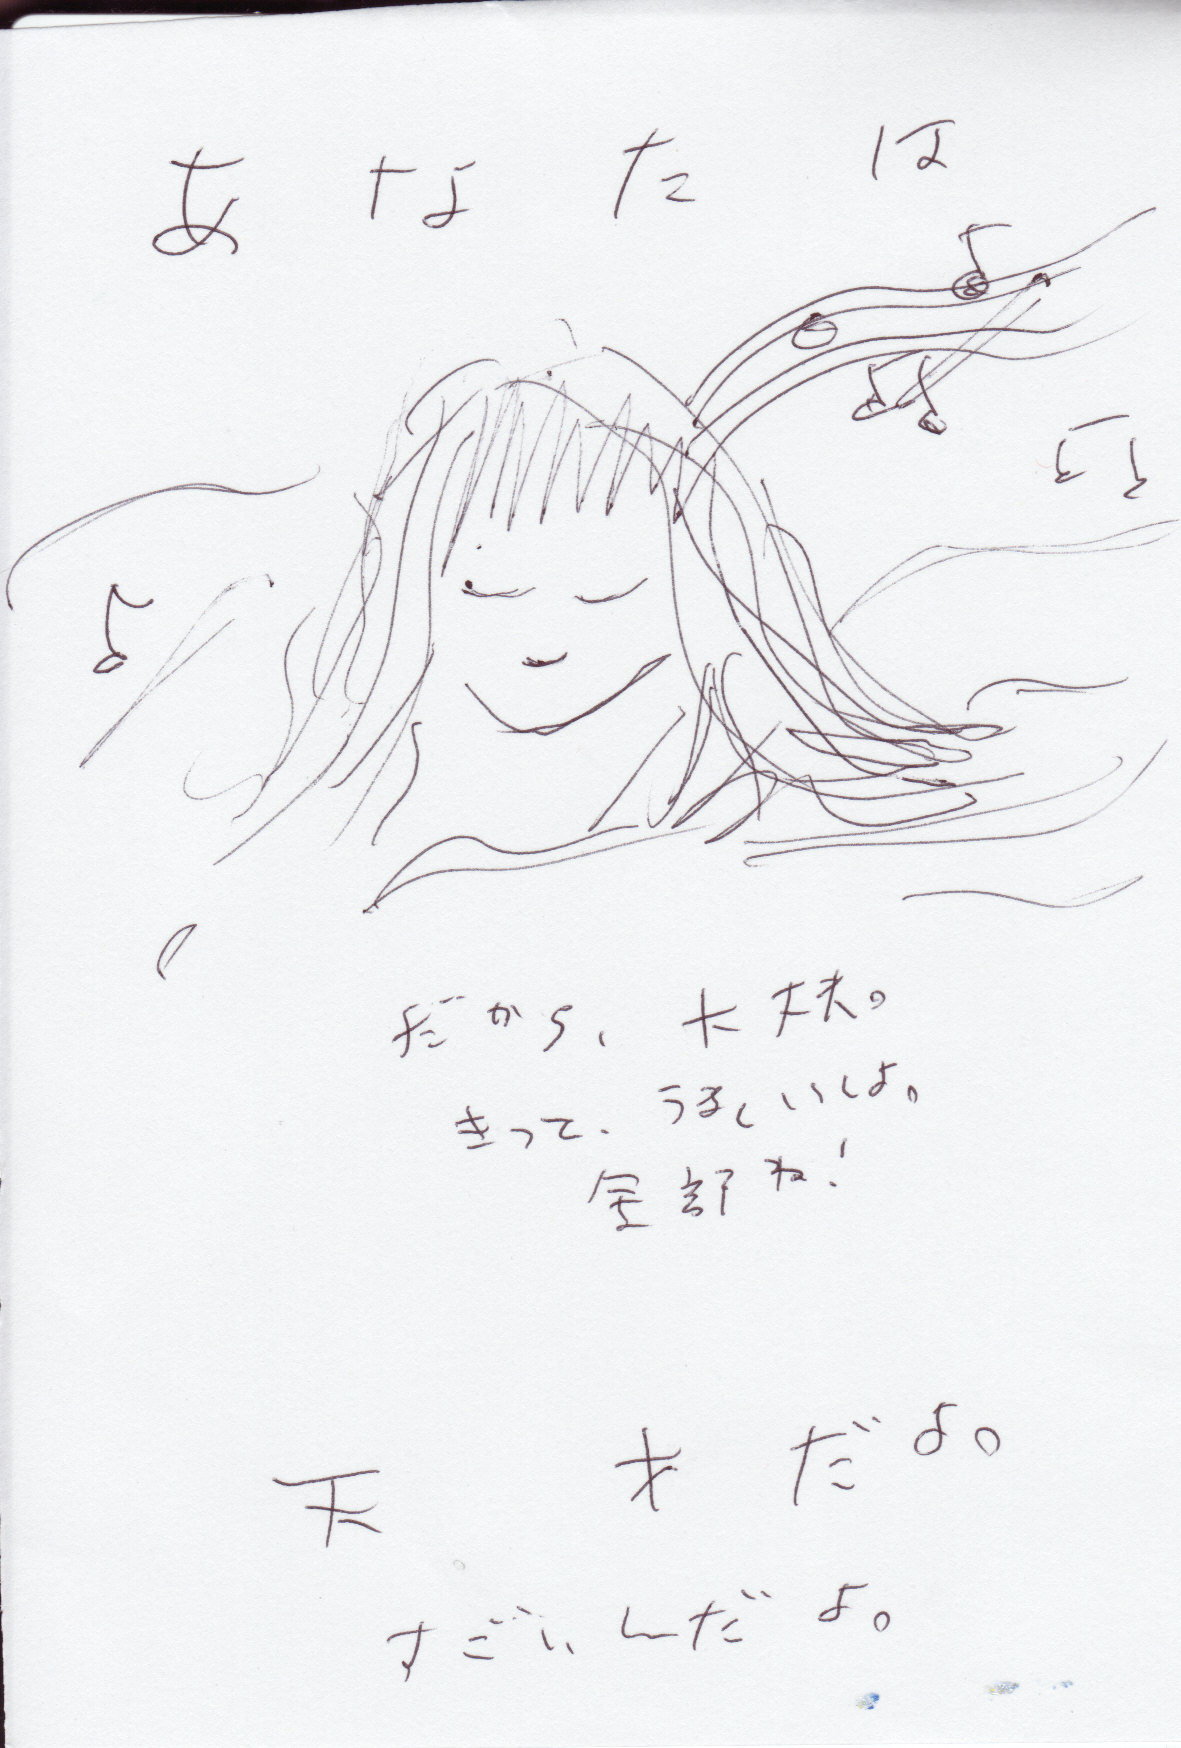 あなたは
だから、大丈夫。
きって、うまくいくよ。
全部ね!
天才だよ。
すごいんだよ。